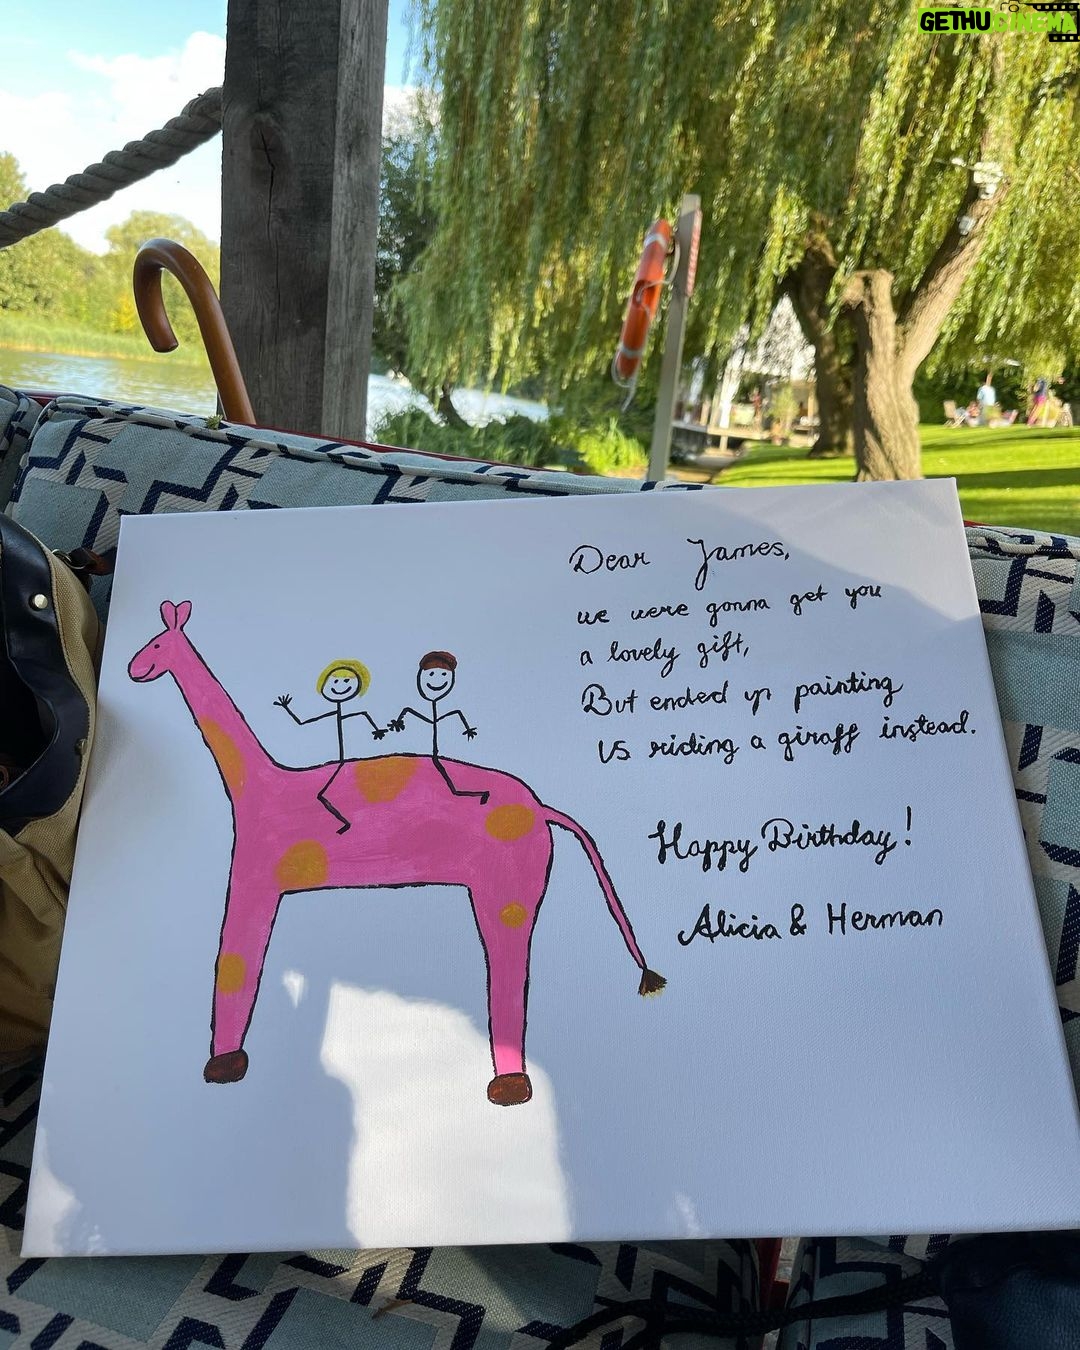 GETHUCINEMA
Dear James,
we were gonna get you
a lovely gift,
But ended up painting
us riding a giraff instead.
Happy Birthday!
Alicia & Herman